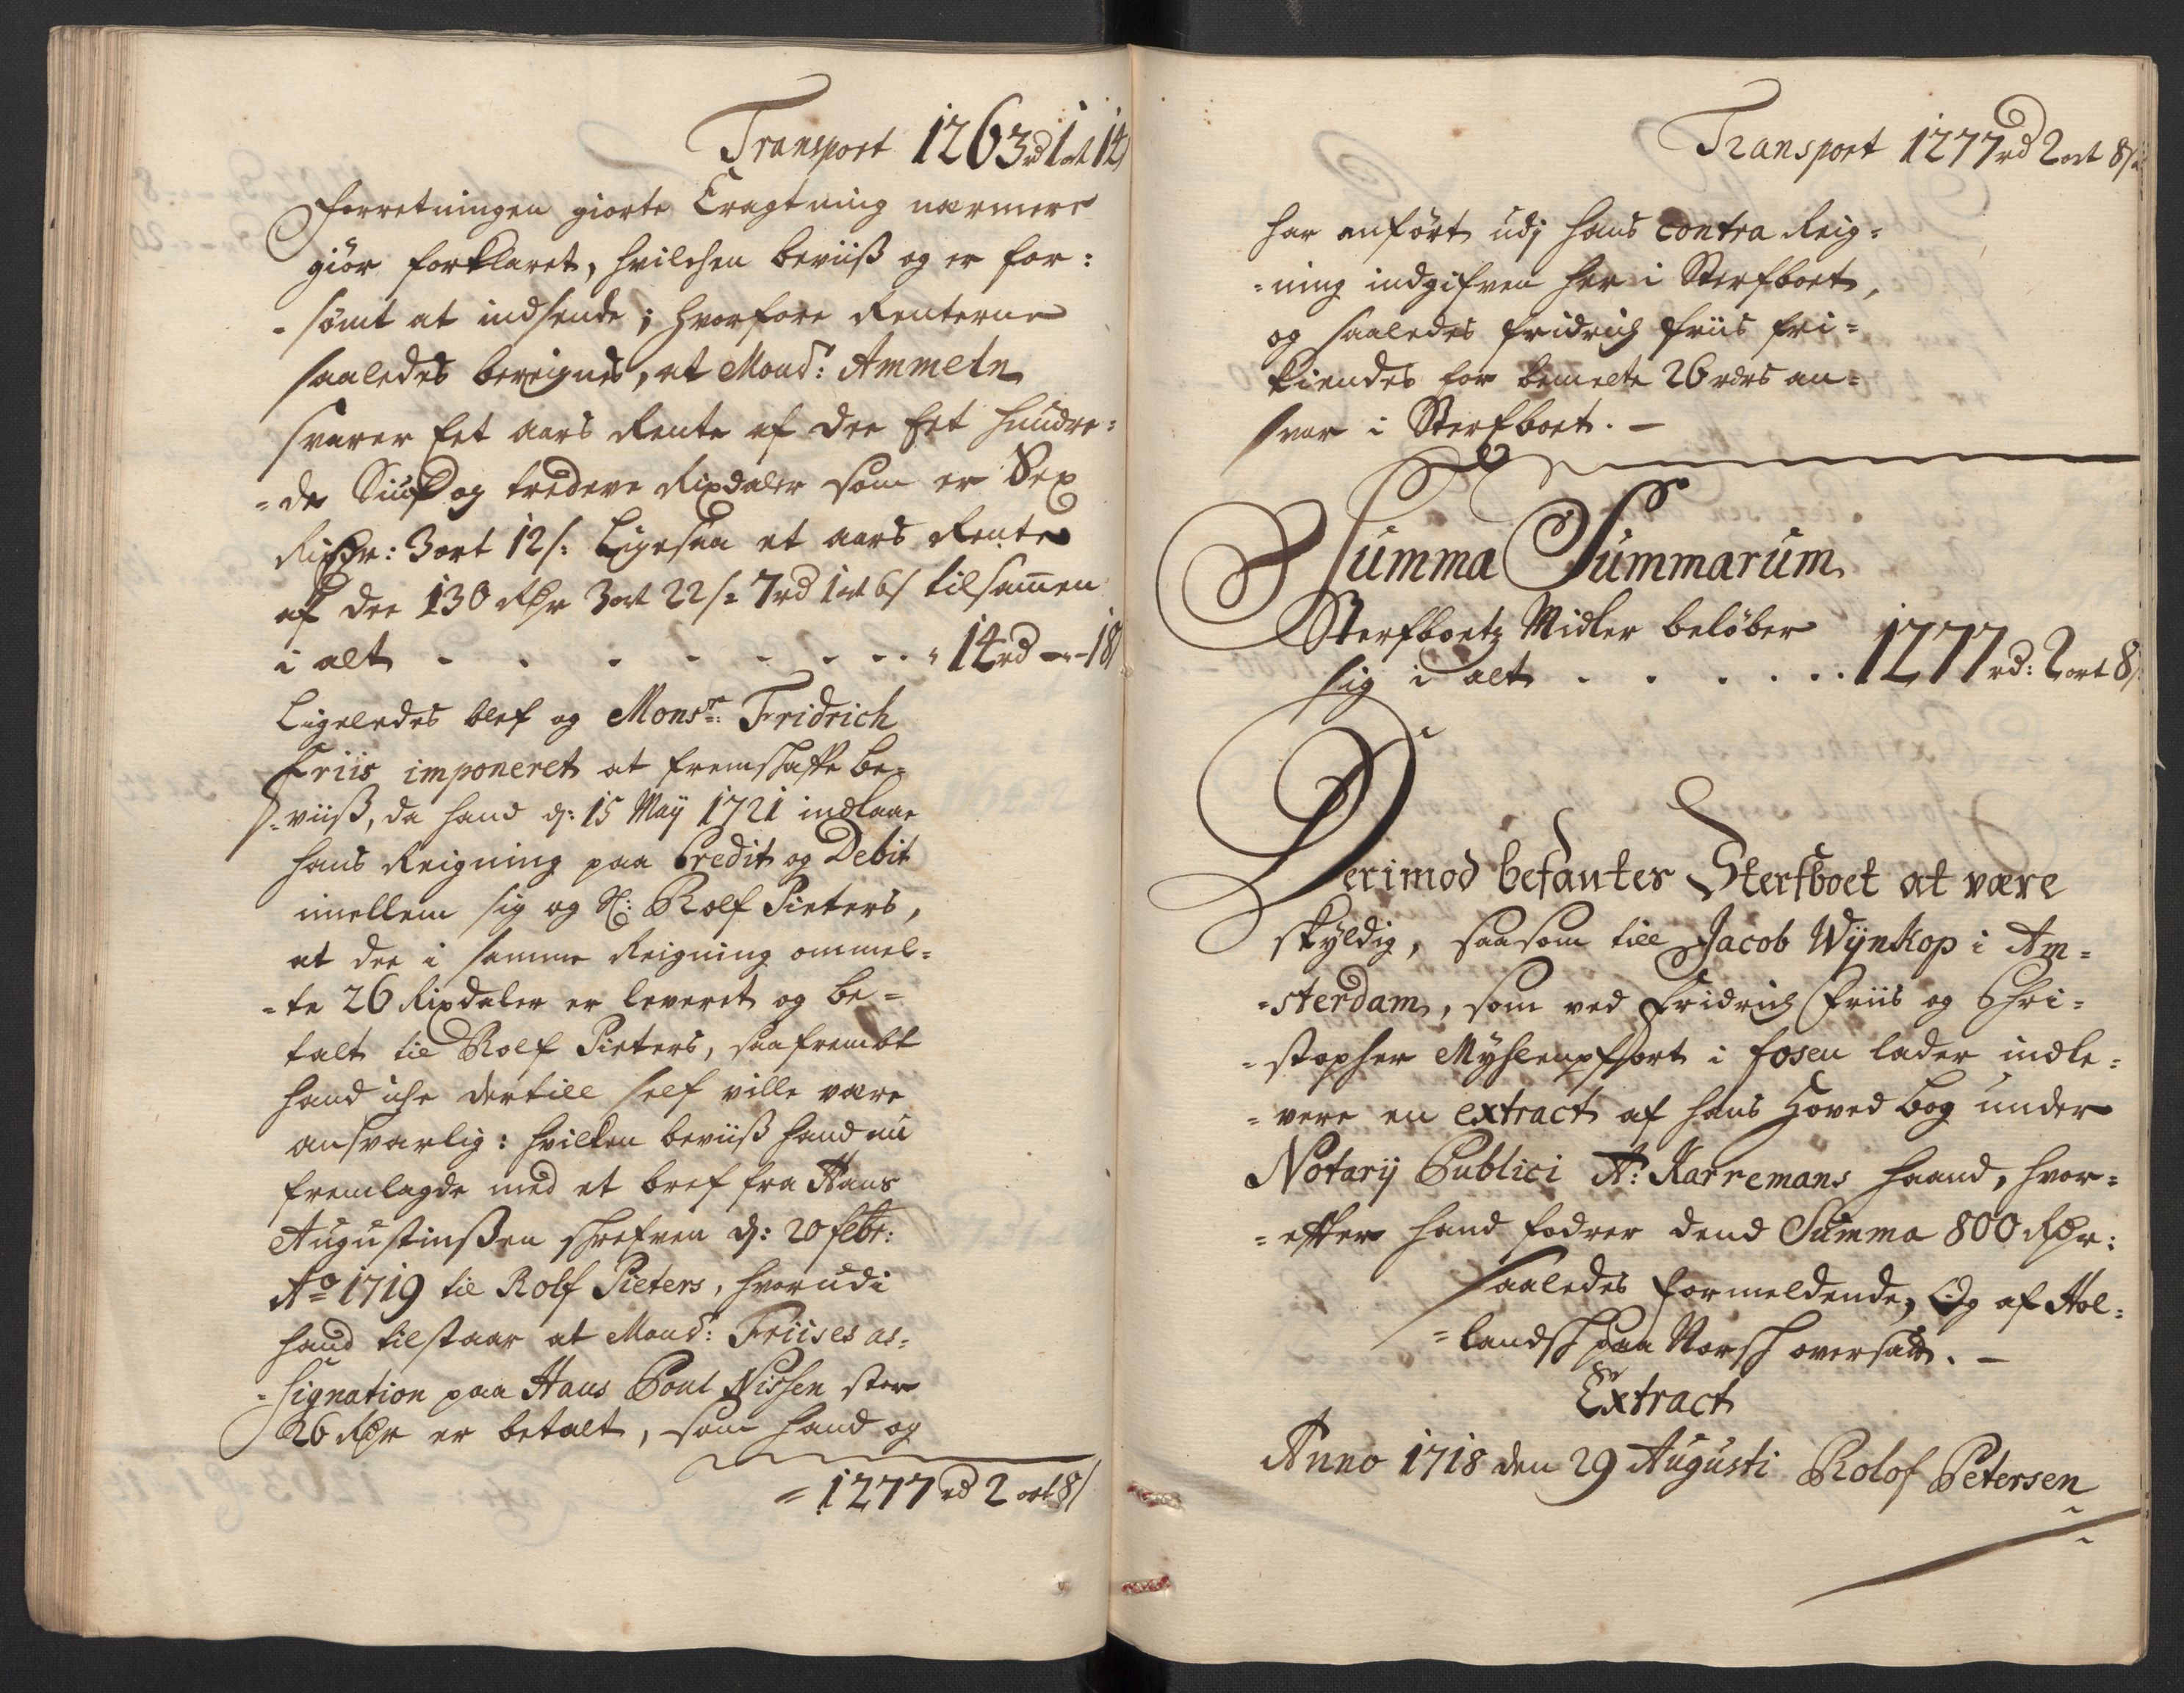 Transport 1263rd 1ort 14/
forretningen giorte Eragtning nærmere
giør forklaret, hvilchen beviiß og er for:
-sömt at indsende; hvorfore Renterne
saaledes bereignes, at Mons:r Ammeln
svarer Eet aars Rente af dee Eet hundre:
=de Siuf og tredeve Rixdaler som er Sex
Rixdr: 3ort 12/: Ligesaa et aars Rente
af dee 130 Rdr 3ort 22/= 7rd 1ort 6/ tilsamen
i alt - - - - - - - - 14rd - " - 18/
Ligeledes blef og Monsr: Fridrich
Friis imponeret at fremskaffe be=
=viiß, da hand d: 15 Maÿ 1721 indlaae
hans Reigning paa Credit og Debit
imellem sig og Sl: Rolf Pieters,
at dee i samme Reigning ommel=
=te 26 Rixdaler er leveret og be=
talt til Rolf Pieters, saafremt
hand iche dertill self ville være
ansvarlig: hvilken beviiß hand nu
fremlagde med et bref fra Hans
Augustinßen skrefven d: 20 febr:
Ao 1719 til Rolf Pieters, hvorudi
hand tilstaar at Mons:r Friises as=
=signation paa Hans Poul Nissen stor
26 Rdr er betalt, som hand og
= 1277rd 2ort 8/
Transport 1277rd 2ort 8/
har anført udj hans contra Reig=
=ning indgifven her i Sterfboet,
og saaledes fridrich friis fri=
kiendes for bemelte 26 rdrs an=
svar i Sterfboet. -
Summa Summarum
Sterfboetz Midler beløber
sig i alt - - - - - - 1277rd: 2ort 8/
Derimod befantes Sterfboet at være
skÿldig, saasom till Jacob Wÿnkop i Am=
=sterdam, som ved Fridrich Friis og Chri=
=stopher Mÿhlenpfort i fosen lader indle=
=vere en extract af hans Hoved bog under
Notarÿ Publici A: Karremans haand, hvor=
=effter hand fodrer dend Summa 800 Rdr:
saaledes formeldende, Og af Hol=
=landsk paa Norsk oversatt. -
Extract
Anno 1718 den 29 Augusti Rolof Petersen